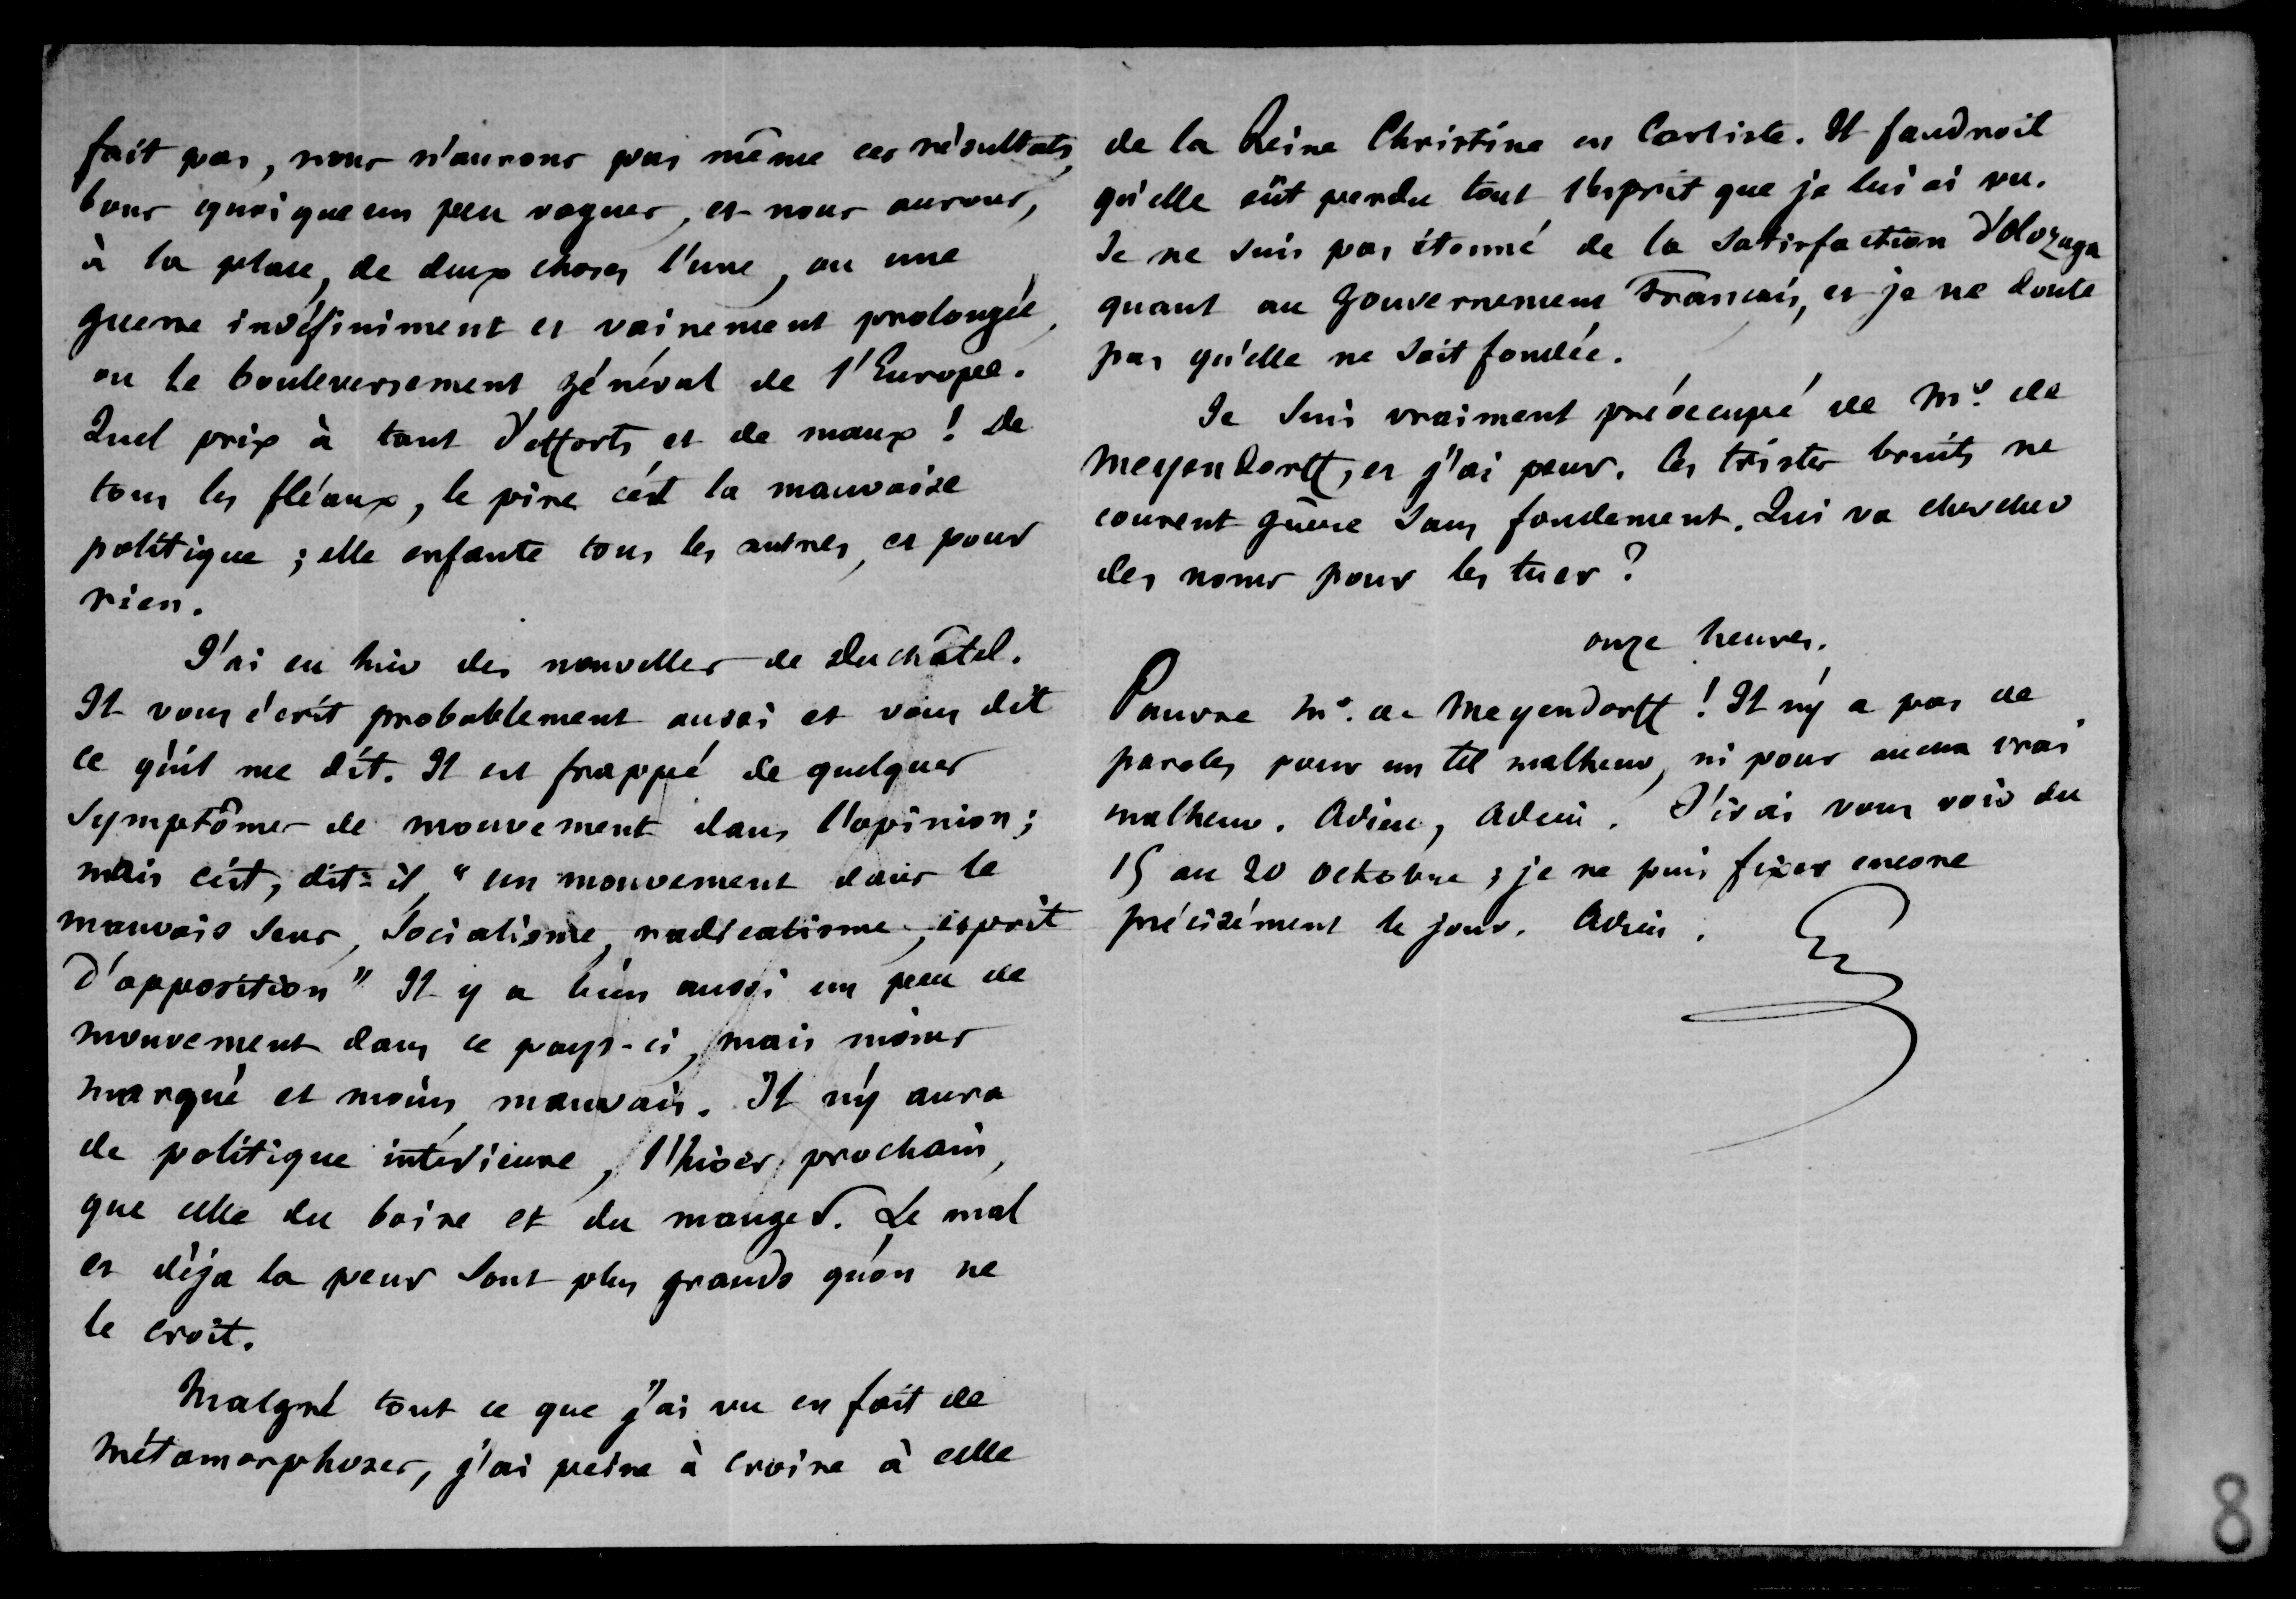 fait pas, nous n'aurons pas même ces résultats,
bons quoique un peu vagues, et nous aurons,
à la place, de deux choses l'une, ou une
guerre indéfiniment et vainement prolongée,
ou le bouleversement général de l'Europe.
Quel prix à tant d'efforts et de maux ! De
tous les fléaux, le pire c'est la mauvaise
politique ; elle enfante tous les autres, et pour
rien.
J'ai eu hier des nouvelles de Duchâtel.
Il vous écrit probablement aussi et vous dit
ce qu'il me dit. Il est frappé de quelques
symptômes de mouvement dans l'opinion ;
mais c'est, dit-il, "un mouvement dans le
mauvais sens, socialisme, radicalisme, esprit
d'opposition" Il y a bien aussi un peu de
mouvement dans ce pays-ci, mais moins
marqué et moins mauvais. Il n'y aura
de politique intérieure, l'hiver prochain,
que celle du boire et du manger. Le mal
et déja la peur sont plus grands qu'on ne
le croit.
Malgré tout ce que j'ai vu en fait de
métamorphoses, j'ai peine à croire à celle
de la Reine Christine en Carliste. Il faudroit
qu'elle eût perdu tout l'esprit que je lui ai vu.
Je ne suis pas étonné de la satisfaction d'Olozaga
quant au gouvernement Français, et je ne doute
pas qu'elle ne soit fondée.
Je suis vraiment préoccupé de Me. de
Meyendorff, et j'ai peur. Ces tristes bruits ne
courent guère sans fondement. Qui va chercher
des noms pour les tuer ?
onze heures.
Pauvre Me. de Meyendorff ! Il n'y a pas de
paroles pour un tel malheur, ni pour aucun vrai
malheur. Adieu, Adieu. J'irai vous voir du
15 au 20 octobre ; je ne puis fixer encore
précisément le jour. Adieu.
8